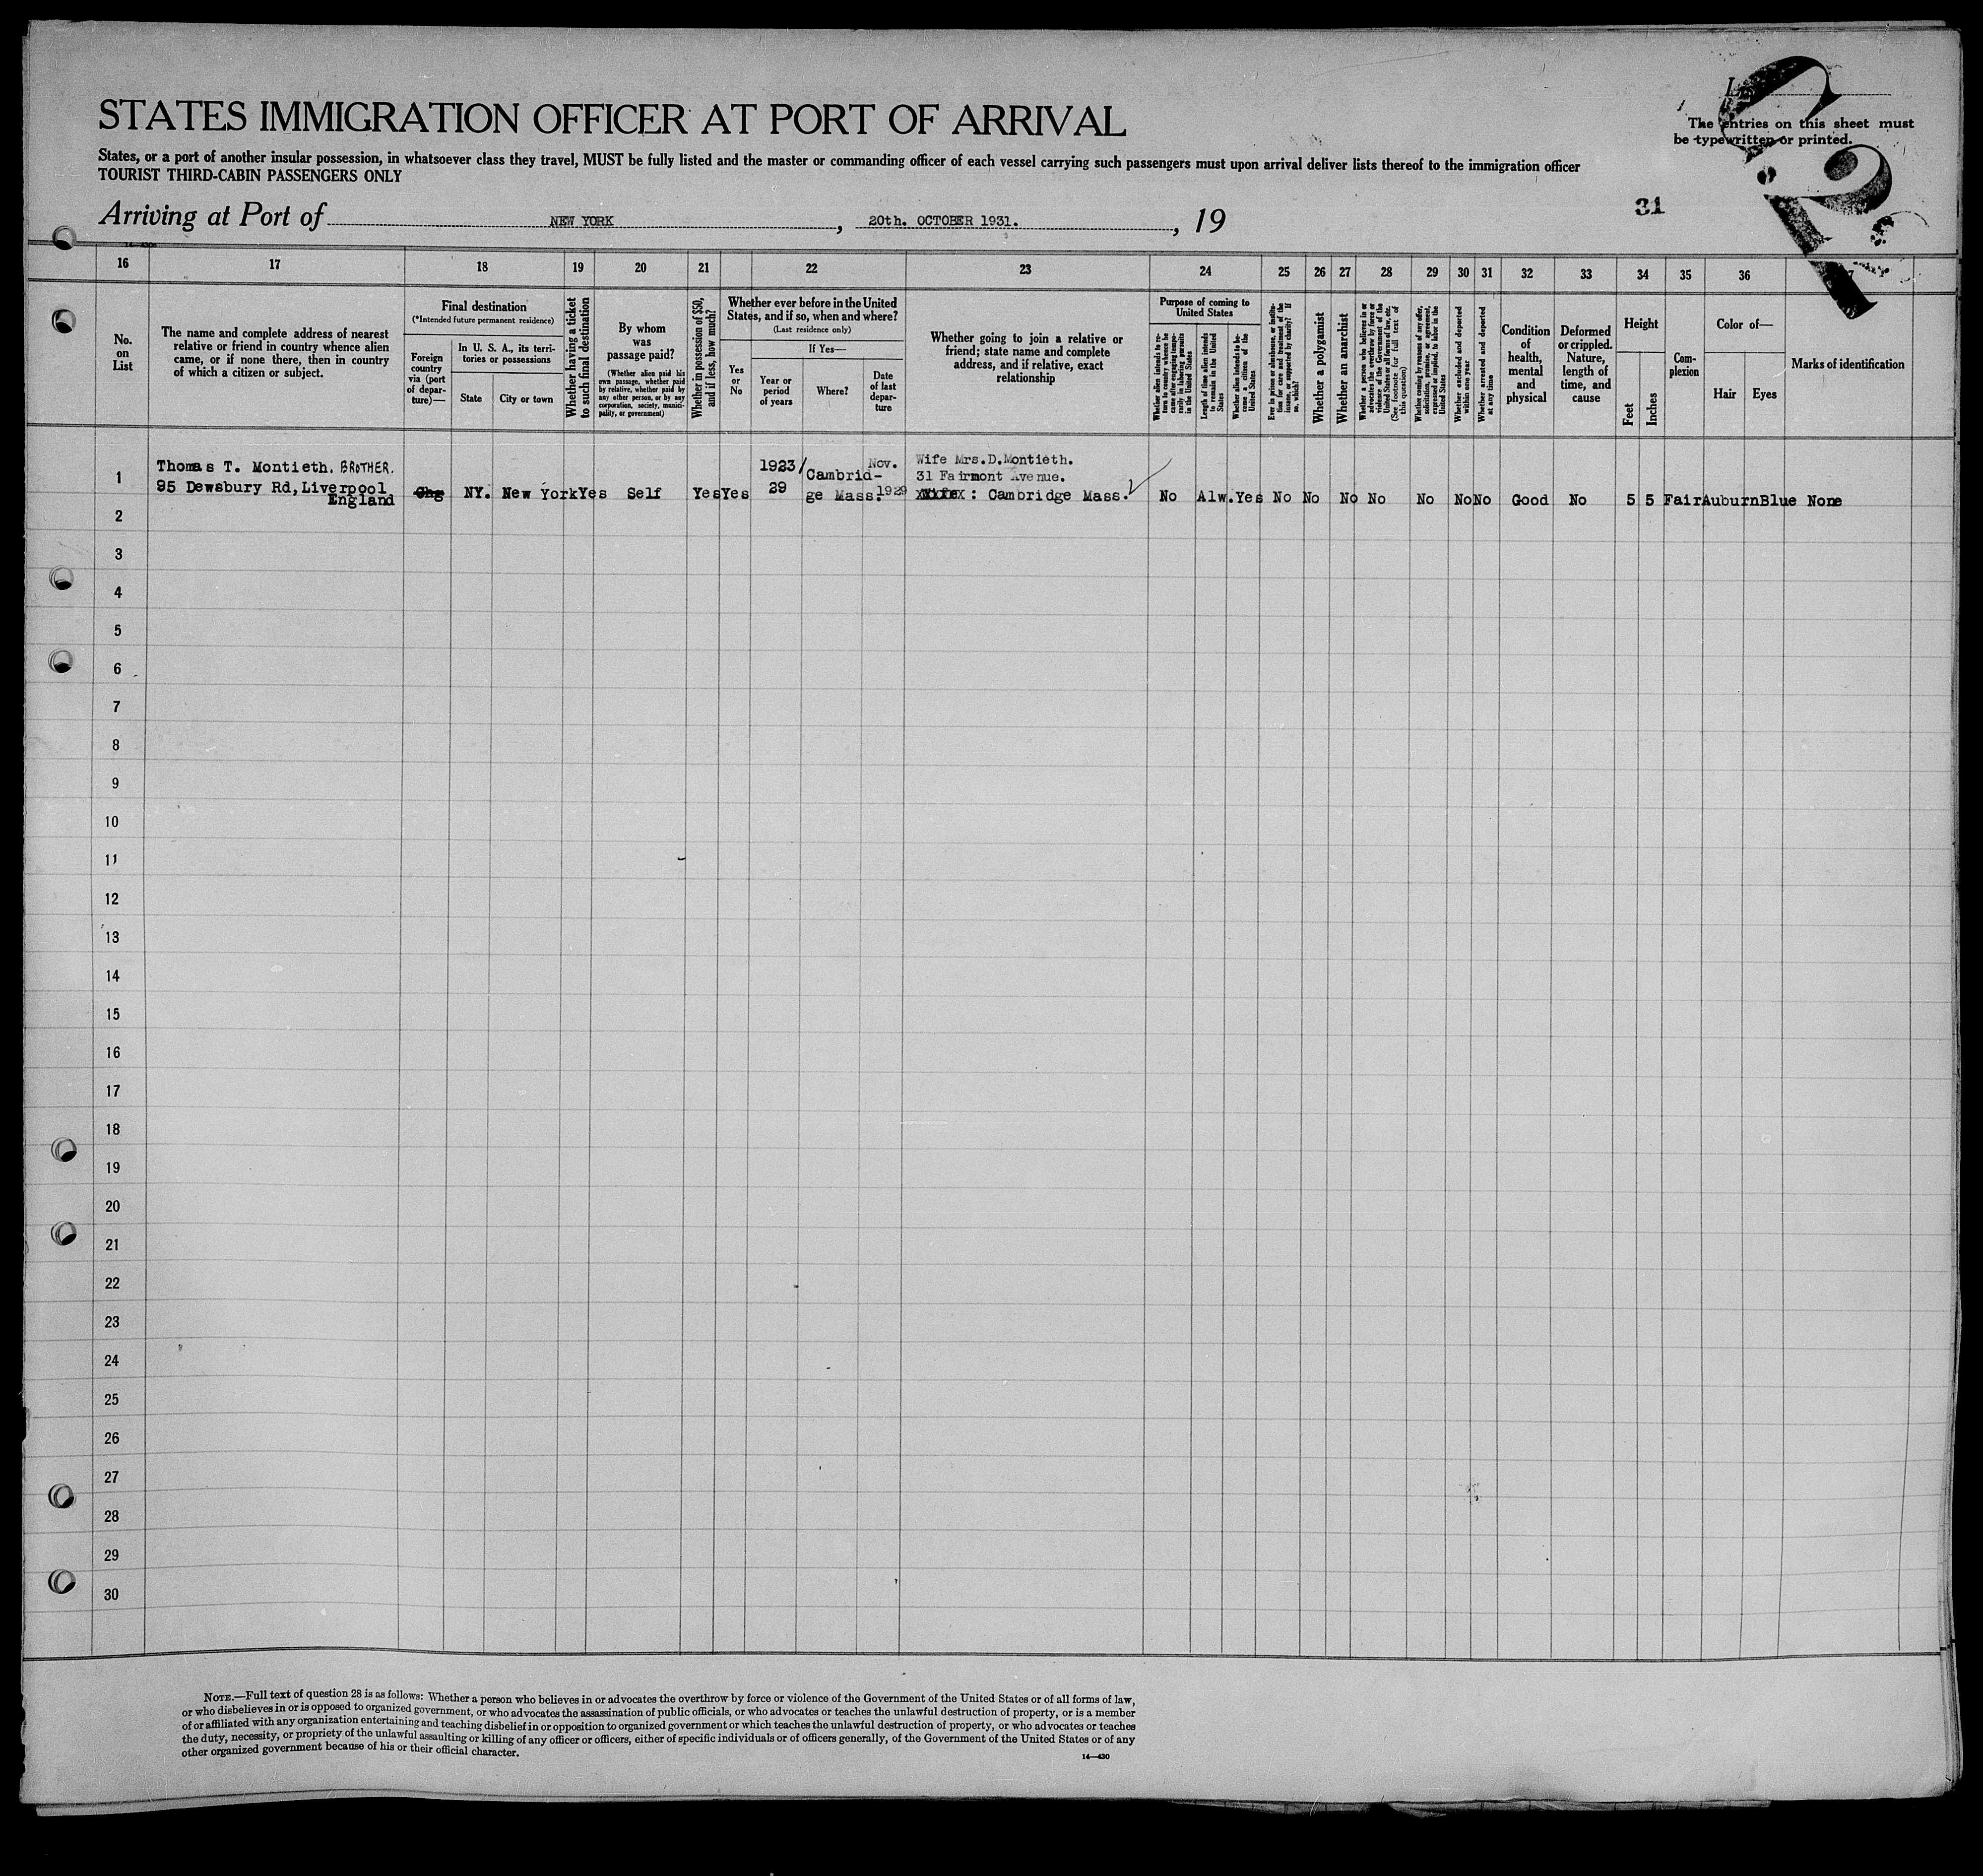 STATES IMMIGRATION OFFICER AT PORT OF ARRIVAL
The entries on this sheet must
be typewritten or printed.
States, or a port of another insular possession, in whatsoever class they travel, MUST be fully listed and the master or commanding officer of each vessel carrying such passengers must upon arrival deliver lists thereof to the immigration officer
TOURIST THIRD-CABIN PASSENGERS ONLY
31
Arriving at Port of NEW YORK, 20th. OCTOBER 1931., 19
16 17 18 19 20 21 22 23 24 25 26 27 28 29 30 31 32 33 34 35 36
No.
on
List
The name and complete address of nearest
relative or friend in country whence alien
came, or if none there, then in country
of which a citizen or subject.
Final destination
(*Intended future permanent residence)
Foreign
country
via (port
of depar-
ture)—
In U. S. A., its terri-
tories or possessions
State
City or town
Whether having a ticket
to such final destination
By whom
was
passage paid?
(Whether alien paid his
own passage, whether paid
by relative, whether paid by
any other person, or by any
corporation, society, munici-
pality, or government)
Whether in possession of $50,
and if less, how much?
Whether ever before in the United
States, and if so, when and where?
(Last residence only)
Yes
or
No
If Yes—
Year or
period
of years
Where?
Date
of last
depar-
ture
Whether going to join a relative or
friend; state name and complete
address, and if relative, exact
relationship
Purpose of coming to
United States
Whether alien intends to re-
turn to country whence he
came after engaging tempo-
rarily in laboring pursuits
in the United States
Length of time alien intends
to remain in the United
States
Whether alien intends to be-
come a citizen of the
United States
Ever in prison or almshouse, or institu-
tion for care and treatment of the
insane, or supported by charity? If
so, which?
Whether a polygamist
Whether an anarchist
Whether a person who believes in or
advocates the overthrow by force or
violence of the Government of the
United States or all forms of law, etc.
(See footnote for full text of
this question)
Whether coming by reasons of any offer,
solicitation, promise, or agreement,
expressed or implied, to labor in the
United States
Whether excluded and deported
within one year
Whether arrested and deported
at any time
Condition
of
health,
mental
and
physical
Deformed
or crippled.
Nature,
length of
time, and
cause
Height
Feet
Inches
Com-
plexion
Color of—
Hair
Eyes
Marks of identification
Thomas T. Montieth. BROTHER.
1 95 Dewsbury Rd, Liverpool
England
Chg NY. New York Yes Self Yes Yes
1923/
29
Cambrid-
ge Mass.
Nov.
1929
Wife Mrs.D.Montieth.
31 Fairmont Avenue.
: Cambridge Mass.
No Alw. Yes No No No No No No No Good No 5 5 Fair Auburn Blue None
2
3
4
5
6
7
8
9
10
11
12
13
14
15
16
17
18
19
20
21
22
23
24
25
26
27
28
29
30
NOTE.—Full text of question 28 is as follows: Whether a person who believes in or advocates the overthrow by force or violence of the Government of the United States or of all forms of law,
or who disbelieves in or is opposed to organized government, or who advocates the assassination of public officials, or who advocates or teaches the unlawful destruction of property, or is a member
of or affiliated with any organization entertaining and teaching disbelief in or opposition to organized government or which teaches the unlawful destruction of property, or who advocates or teaches
the duty, necessity, or propriety of the unlawful assaulting or killing of any officer or officers, either of specific individuals or of officers generally, of the Government of the United States or of any
other organized government because of his or their official character.
14—430